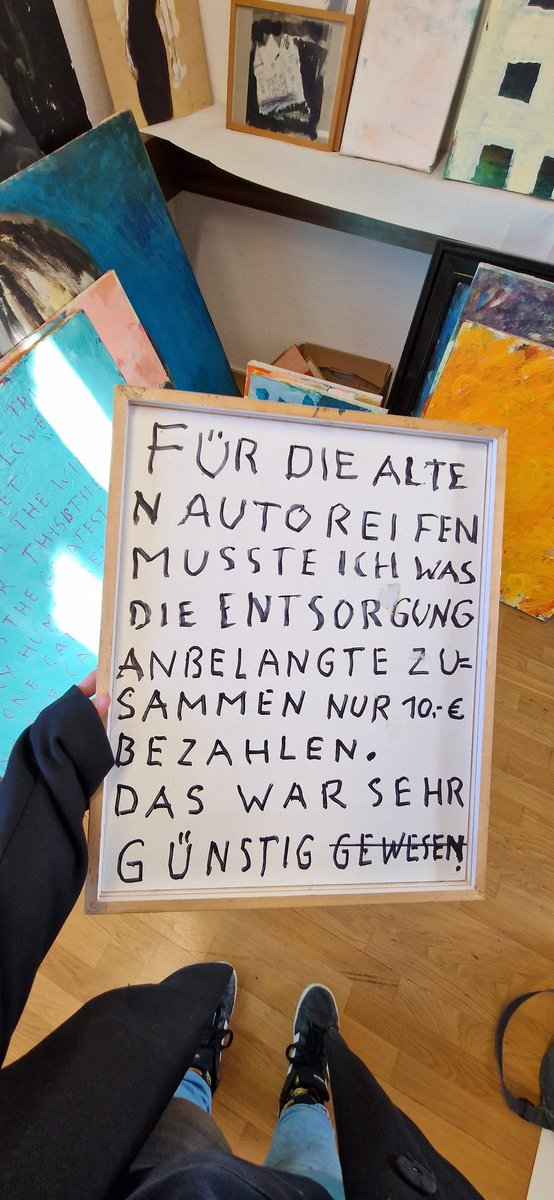 FÜR DIE ALTE
N AUTOREIFEN
MUSSTE ICH WAS
DIE ENTSORGUNG
ANBELANGTE ZU=
SAMMEN NUR 10,-€
BEZAHLEN.
DAS WAR SEHR
GÜNSTIG GEWESEN.
THE WI
THIS